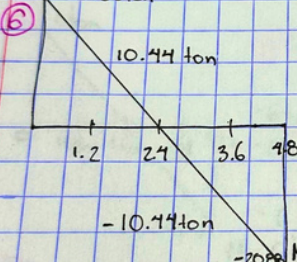 6
10.44 ton
1.2 24 3.6 4.8
-10.44ton